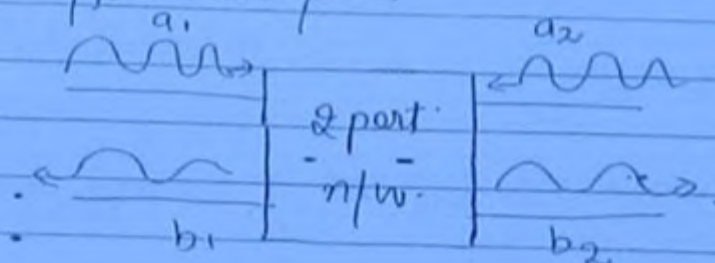 a1 a2
2 part
n/w.
b1 b2